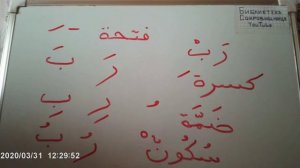 БИБЛИОТЕКА
СОКРОВИЩНИЦА
YouTube
فتحة َ
بَ رَ رَبْ
كسرة ِ
بِ رِ
ضَمَّة ُ
بُ رُ
سُكُونْ ْ
2020/03/31 12:29:52